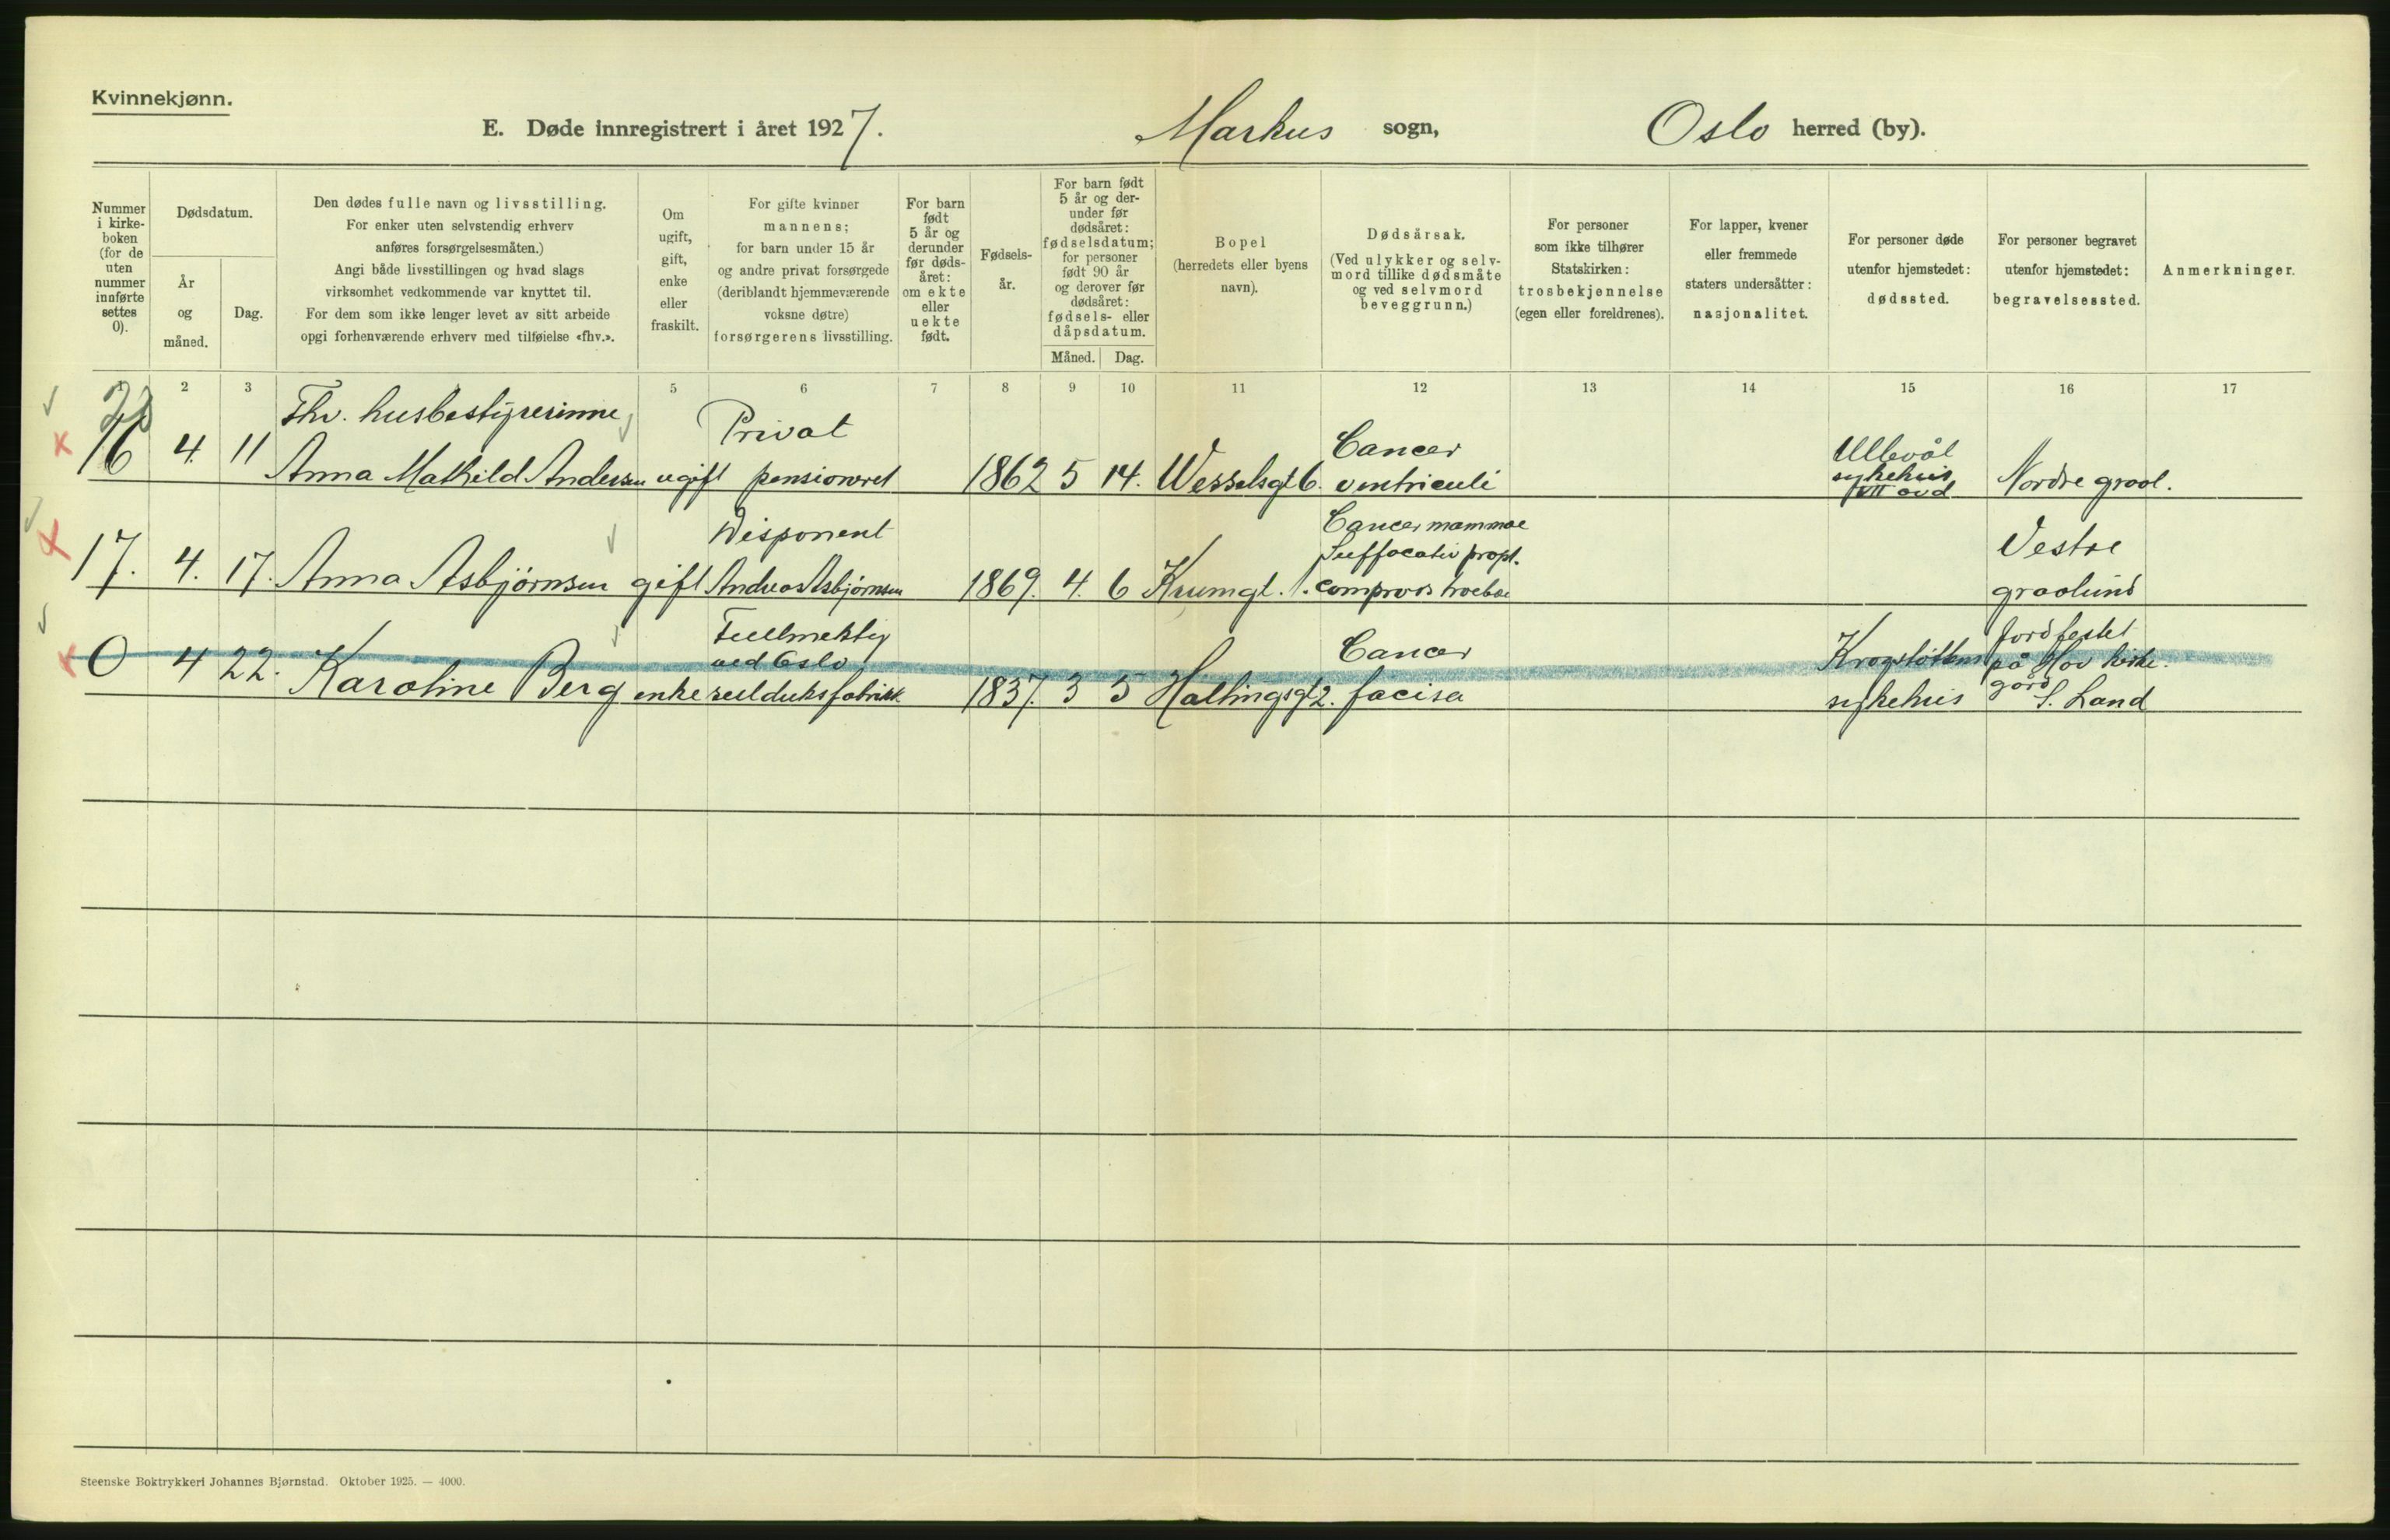 Kvinnekjønn.
E. Døde innregistrert i året 1927. Markus sogn, Oslo herred (by).
Nummer i kirke- boken (for de uten nummer innførte settes 0).
Dødsdatum.
År og måned.
Dag.
Den dødes fulle navn og livsstilling.
For enker uten selvstendig erhverv
anføres forsørgelsesmåten.)
Angi både livsstillingen og hvad slags
virksomhet vedkommende var knyttet til.
For dem som ikke lenger levet av sitt arbeide
opgi forhenværende erhverv med tilføielse «fhv.».
Om ugift, gift, enke eller fraskilt.
For gifte kvinner
mannens;
for barn under 15 år
og andre privat forsørgede
(deriblandt hjemmeværende
voksne døtre)
forsørgerens livsstilling.
For barn født 5 år og derunder før døds- året: om ekte eller uekte født.
Fødsels- år.
For barn født
5 år og der-
under før
dødsåret:
fødselsdatum;
for personer
født 90 år
og derover før
dødsåret:
fødsels- eller
dåpsdatum.
Måned. Dag.
Bopel
(herredets eller byens
navn).
Dødsårsak.
(Ved ulykker og selv-
mord tillike dødsmåte
og ved selvmord
beveggrunn.)
For personer
som ikke tilhører
Statskirken:
trosbekjennelse
(egen eller foreldrenes).
For lapper, kvener
eller fremmede
staters undersåtter:
nasjonalitet.
For personer døde
utenfor hjemstedet:
dødssted.
For personer begravet
utenfor hjemstedet:
begravelsessted.
Anmerkninger.
1 2 3 5 6 7 8 9 10 11 12 13 14 15 16 17
Fhv. husbestyrerinne Privat Cancer Ullevål
16 4. 11 Anna Mathild Andersen ugift pensioneret 1862 5 14. Wesselsgt 6. ventriculi sykehus VII avd Nordre gravl.
Disponent Cancer mammae Vestre
17. 4. 17. Anna Asbjörnsen gift Andreas Asbjörnsen 1869. 4. 6 Krumgt. 1. gravlund
Fullmektig Cancer Jordfestet
ved Oslo på Hov kirke-
0 4 22. Karoline Berg enke seilduksfabrikk 1837. 3 5 Hallingsgt 2. sykehus gård S. Land
Steenske Boktrykkeri Johannes Bjørnstad. Oktober 1925. — 4000.